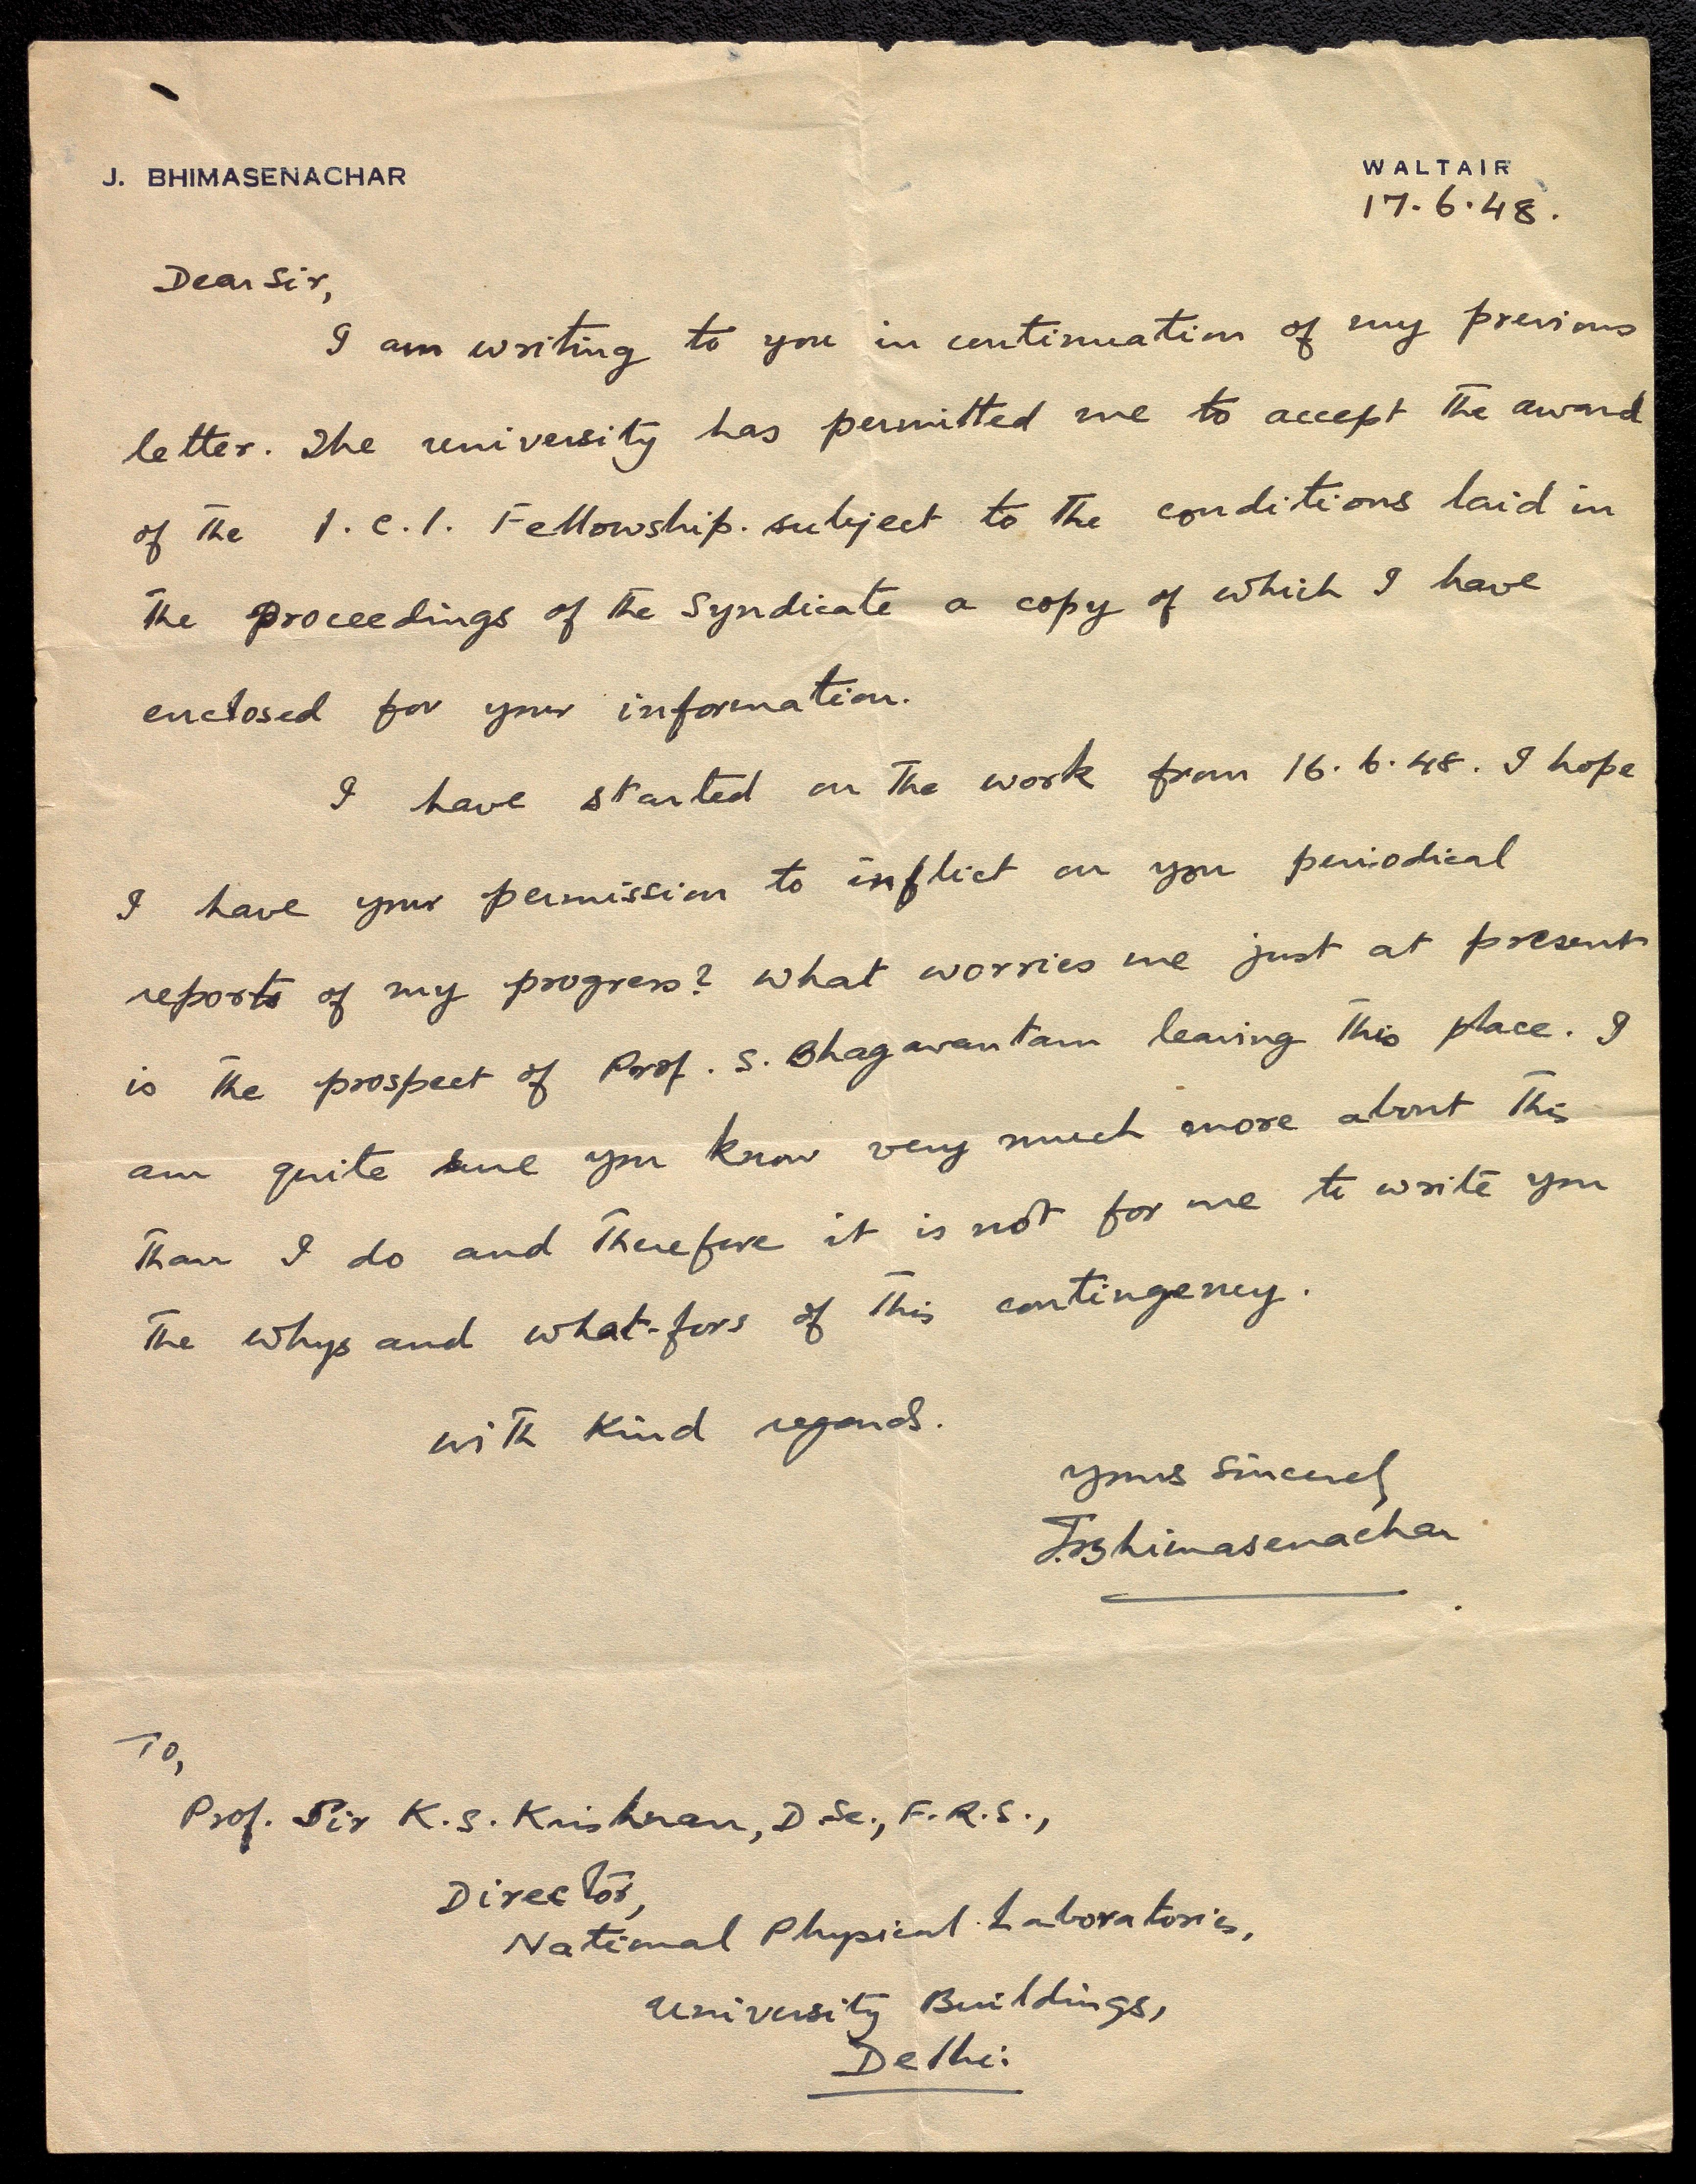 J. BHIMASENACHAR
WALTAIR
17.6.48.
Dear Sir,
I am writing to you in continuation of my previous
letter. The university has permitted me to accept the award
of the I.C.I. Fellowship. subject to the conditions laid in
the proceedings of the Syndicate a copy of which I have
enclosed for your information.
I have started on the work from 16.6.48. I hope
I have your permission to inflict on you periodical
reports of my progress? What worries me just at present
is the prospect of Prof. S. Bhagavantam leaving this place. I
am quite sure you know very much more about this
than I do and therefore it is not for me to write you
the whys and what-fors of this contingency.
with kind regards.
yours sincerely
J. Bhimasenachar
To,
Prof. Sir K.S. Krishnan, D.Sc., F.R.S.,
Director,
National Physical Laboratories,
University Buildings,
Delhi.